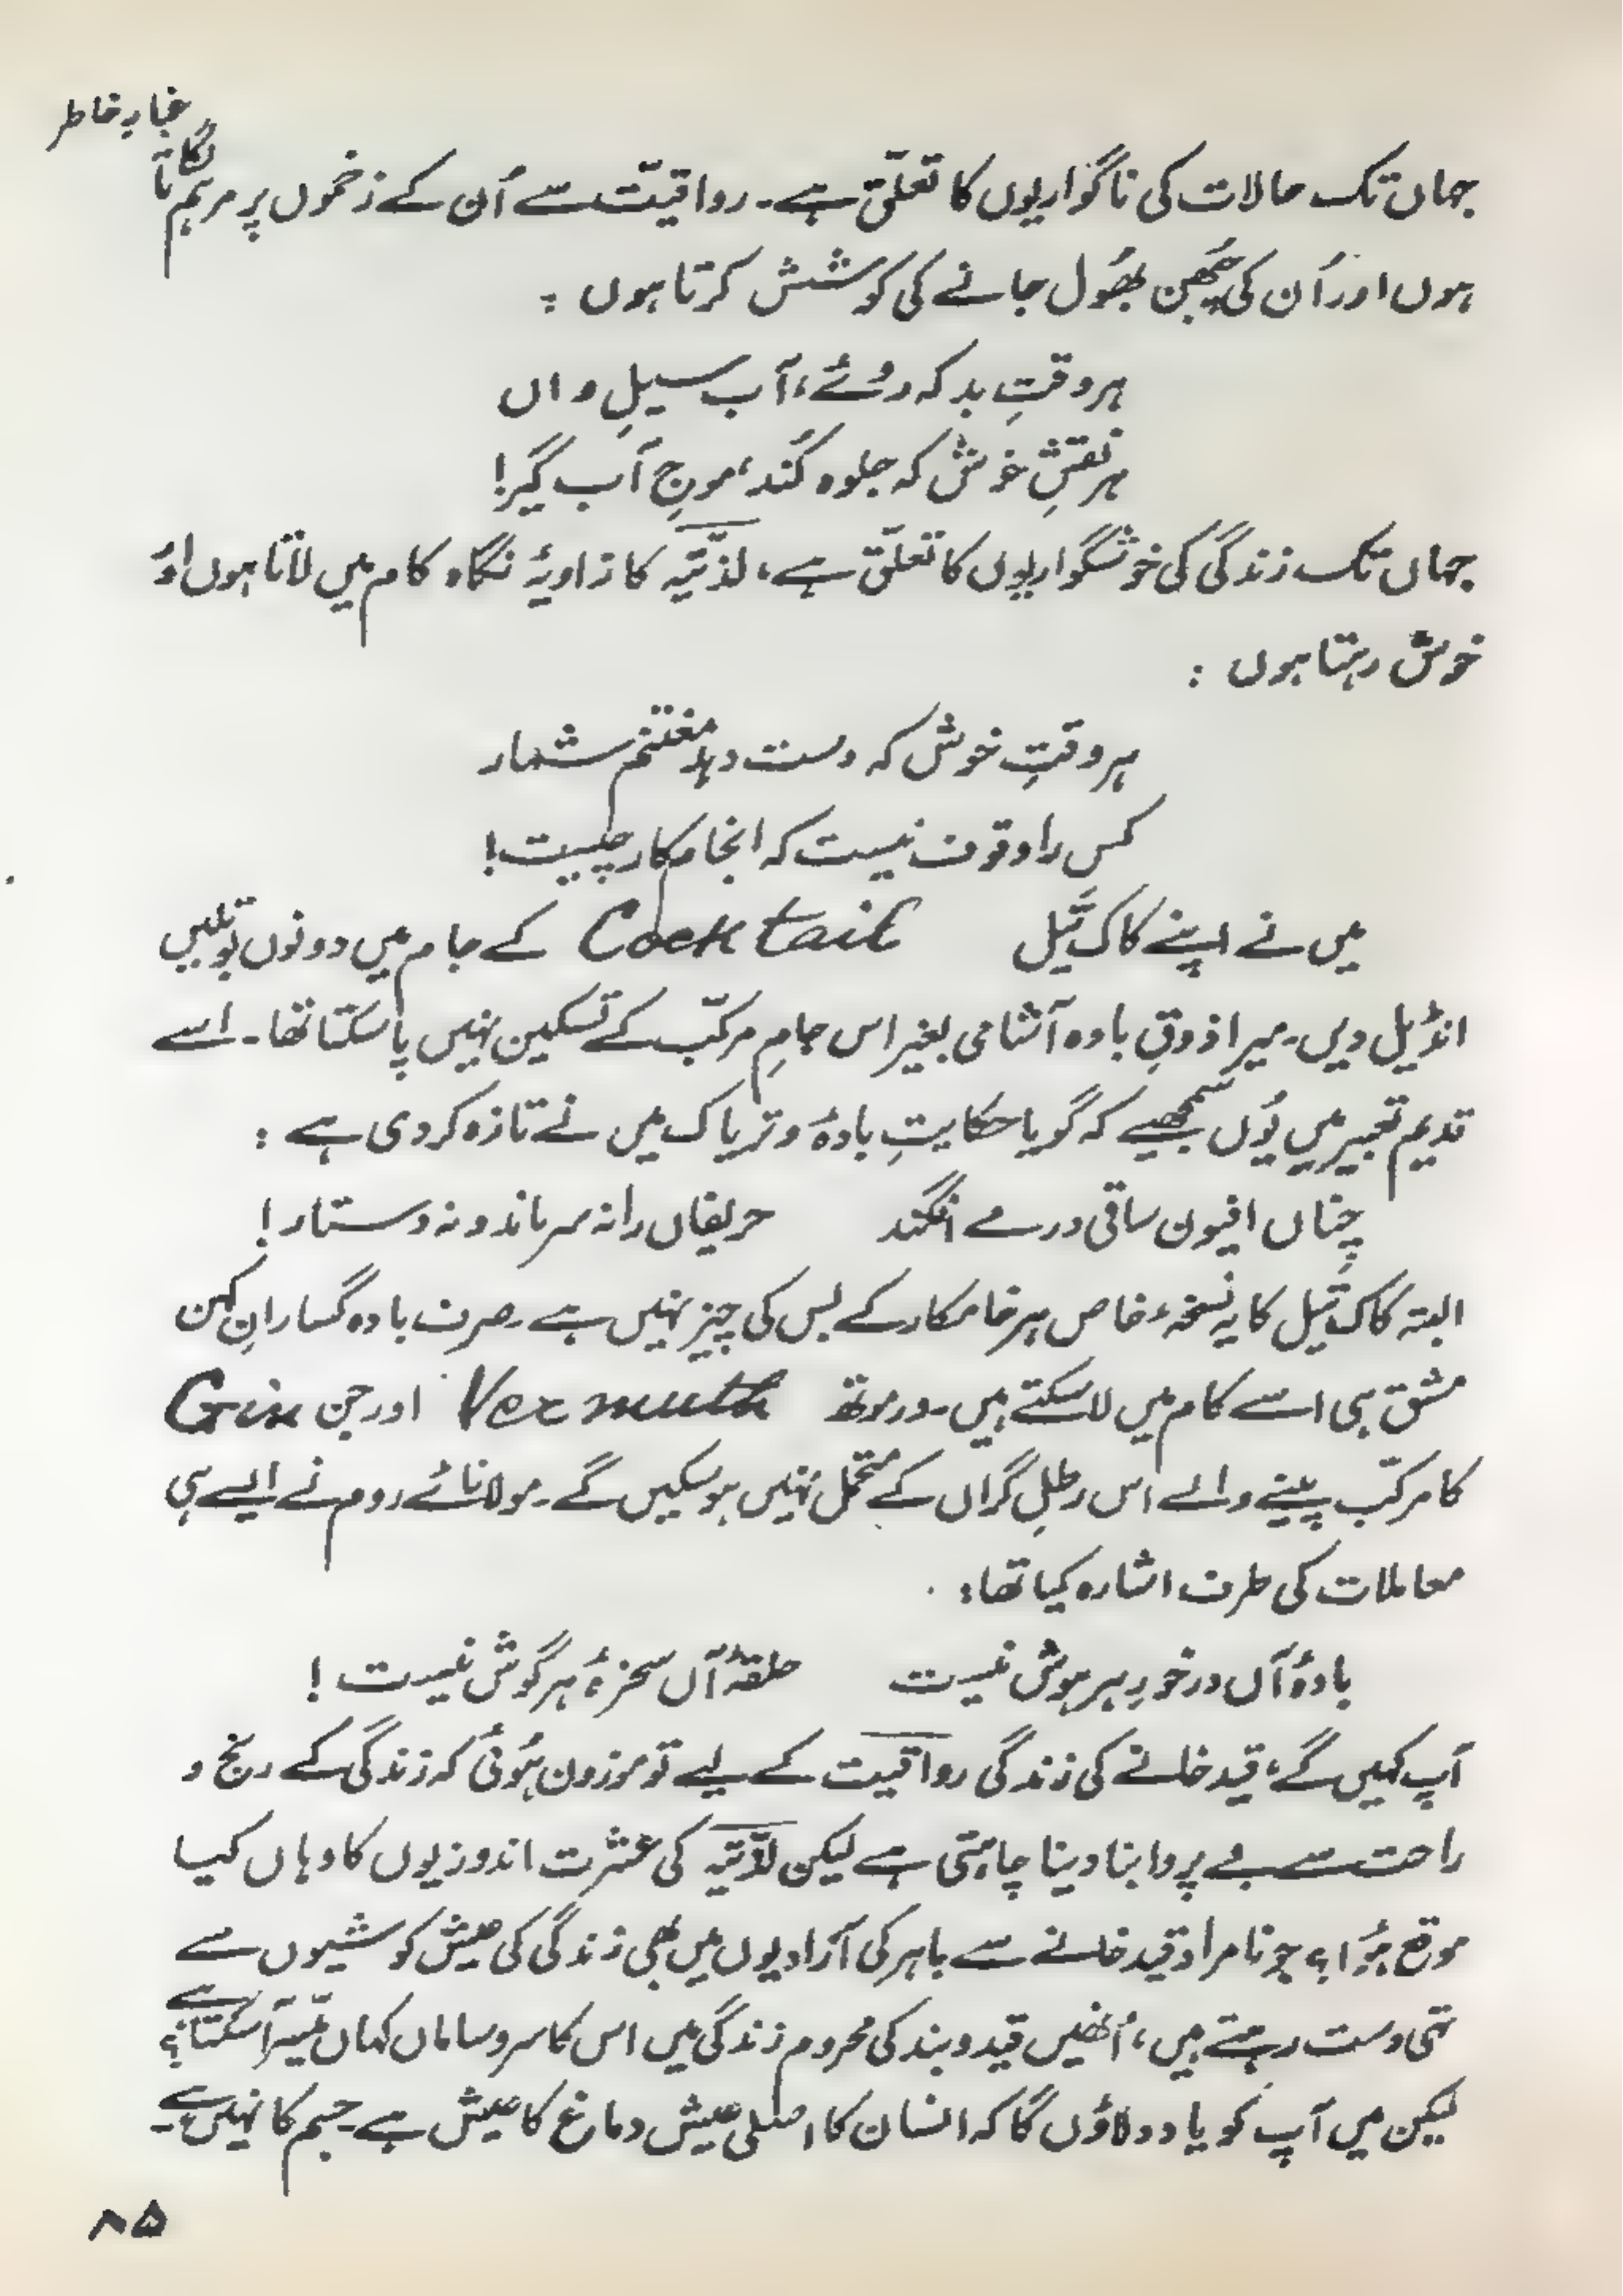 غبارِ خاطر
جہاں تک حالات کی ناگواریوں کا تعلّق ہے۔ رواقیّت سے اُن کے زخموں پر مرہم لگاتا
ہوں اور اُن کی چُبھن بھُول جانے کی کوشش کرتا ہوں :
ہر وقتِ بد کہ روئے، آب سیلِ واں
ہر نقشِ خوش کہ جلوہ کُند، موجِ آب گیر!
جہاں تک زندگی کی خوشگواریوں کا تعلّق ہے، لذّتیّہ کا زاویۂ نگاہ کام میں لاتا ہوں اور
خوش رہتا ہوں :
ہر وقتِ خوش کہ دست دہد مغتنم شمار
کس را وقوف نیست کہ انجام کار چیست!
میں نے اپنے کاک ٹَیل Cocktail کے جام میں دونوں بوتلیں
انڈیل دیں۔ میرا ذوقِ بادہ آشامی بغیر اس جامِ مرکّب کے تسکین نہیں پا سکتا تھا۔ اسے
قدیم تعبیر میں یُوں سمجھیے کہ گویا حکایتِ بادۂ و تریاک میں نے تازہ کر دی ہے :
چناں افیون ساقی در مے افگند حریفاں را نہ سر ماند و نہ دستار!
البتہ کاک ٹَیل کا یہ نسخۂ خاص ہر خامکار کے بس کی چیز نہیں ہے۔ صرف بادہ گسارانِ کہن
مشق ہی اسے کام میں لا سکتے ہیں۔ ورموتھ Vermuth اور جن Gin
کا مرکّب پینے والے اس رطلِ گراں کے متحمّل نہیں ہو سکیں گے۔ مولانائے روم نے ایسے ہی
معاملات کی طرف اشارہ کیا تھا:
بادۂ آں در خورِ ہر ہوش نیست حلقۂ آں سخرۂ ہر گوش نیست !
آپ کہیں گے، قید خانے کی زندگی رواقیت کے لیے تو موزون ہُوئی کہ زندگی کے رنج و
راحت سے بے پروا بنا دینا چاہتی ہے لیکن لذّتیّہ کی عشرت اندوزیوں کا وہاں کیا
موقع ہُوا؟ جو نامراد قید خانے سے باہر کی آزادیوں میں بھی زندگی کی عیش کوشیوں سے
تہی دست رہتے ہیں، اُنھیں قید و بند کی محروم زندگی میں اس کا سروساماں کہاں میّسر آ سکتا ہے؟
لیکن میں آپ کو یاد دلاؤں گا کہ انسان کا اصلی عیش دماغ کا عیش ہے۔ جسم کا نہیں ہے۔
۸۵